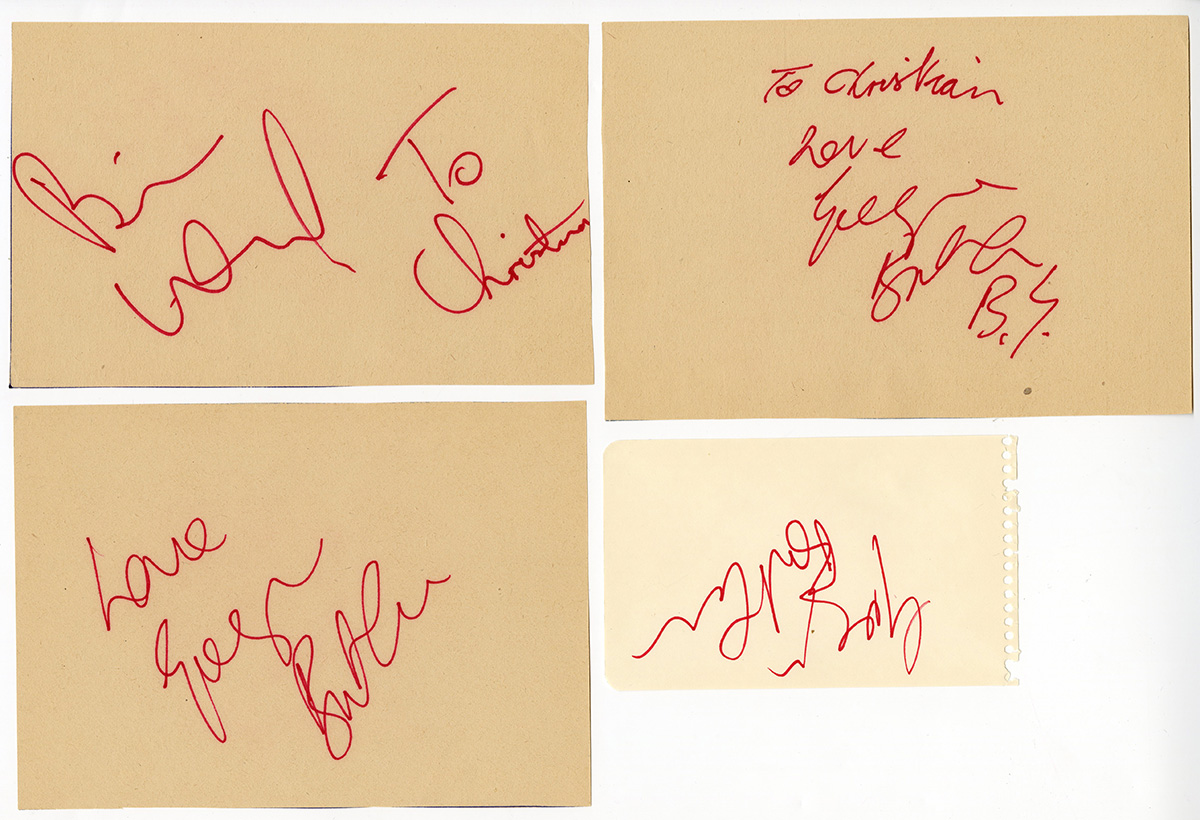 Bill
Ward
To
Christian
To Christian
Love
Geezer
Butler
B.S.
Love
Geezer
Butler